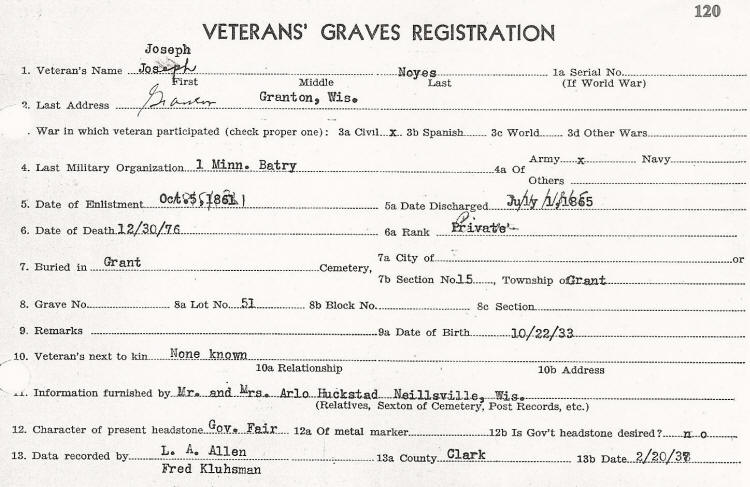 120
VETERANS' GRAVES REGISTRATION
Joseph
1. Veteran's Name Joseph Noyes 1a Serial No.
First Middle Last (If World War)
2. Last Address Granton Granton, Wis.
. War in which veteran participated (check proper one): 3a Civil x 3b Spanish 3c World 3d Other Wars
4. Last Military Organization 1 Minn. Batry 4a Of Army x Navy
Others
5. Date of Enlistment Oct. 5, 1861 5a Date Discharged July 1, 1865
6. Date of Death 12/30/76 6a Rank Private
7. Buried in Grant Cemetery, 7a City of or
7b Section No. 15, Township of Grant
8. Grave No. 8a Lot No. 51 8b Block No. 8c Section
9. Remarks 9a Date of Birth 10/22/33
10. Veteran's next to kin None known
10a Relationship 10b Address
11. Information furnished by Mr. and Mrs. Arlo Huckstad Neillsville, Wis.
(Relatives, Sexton of Cemetery, Post Records, etc.)
12. Character of present headstone Gov. Fair 12a Of metal marker 12b Is Gov't headstone desired? no
13. Data recorded by L. A. Allen 13a County Clark 13b Date 2/20/38
Fred Kluhsman